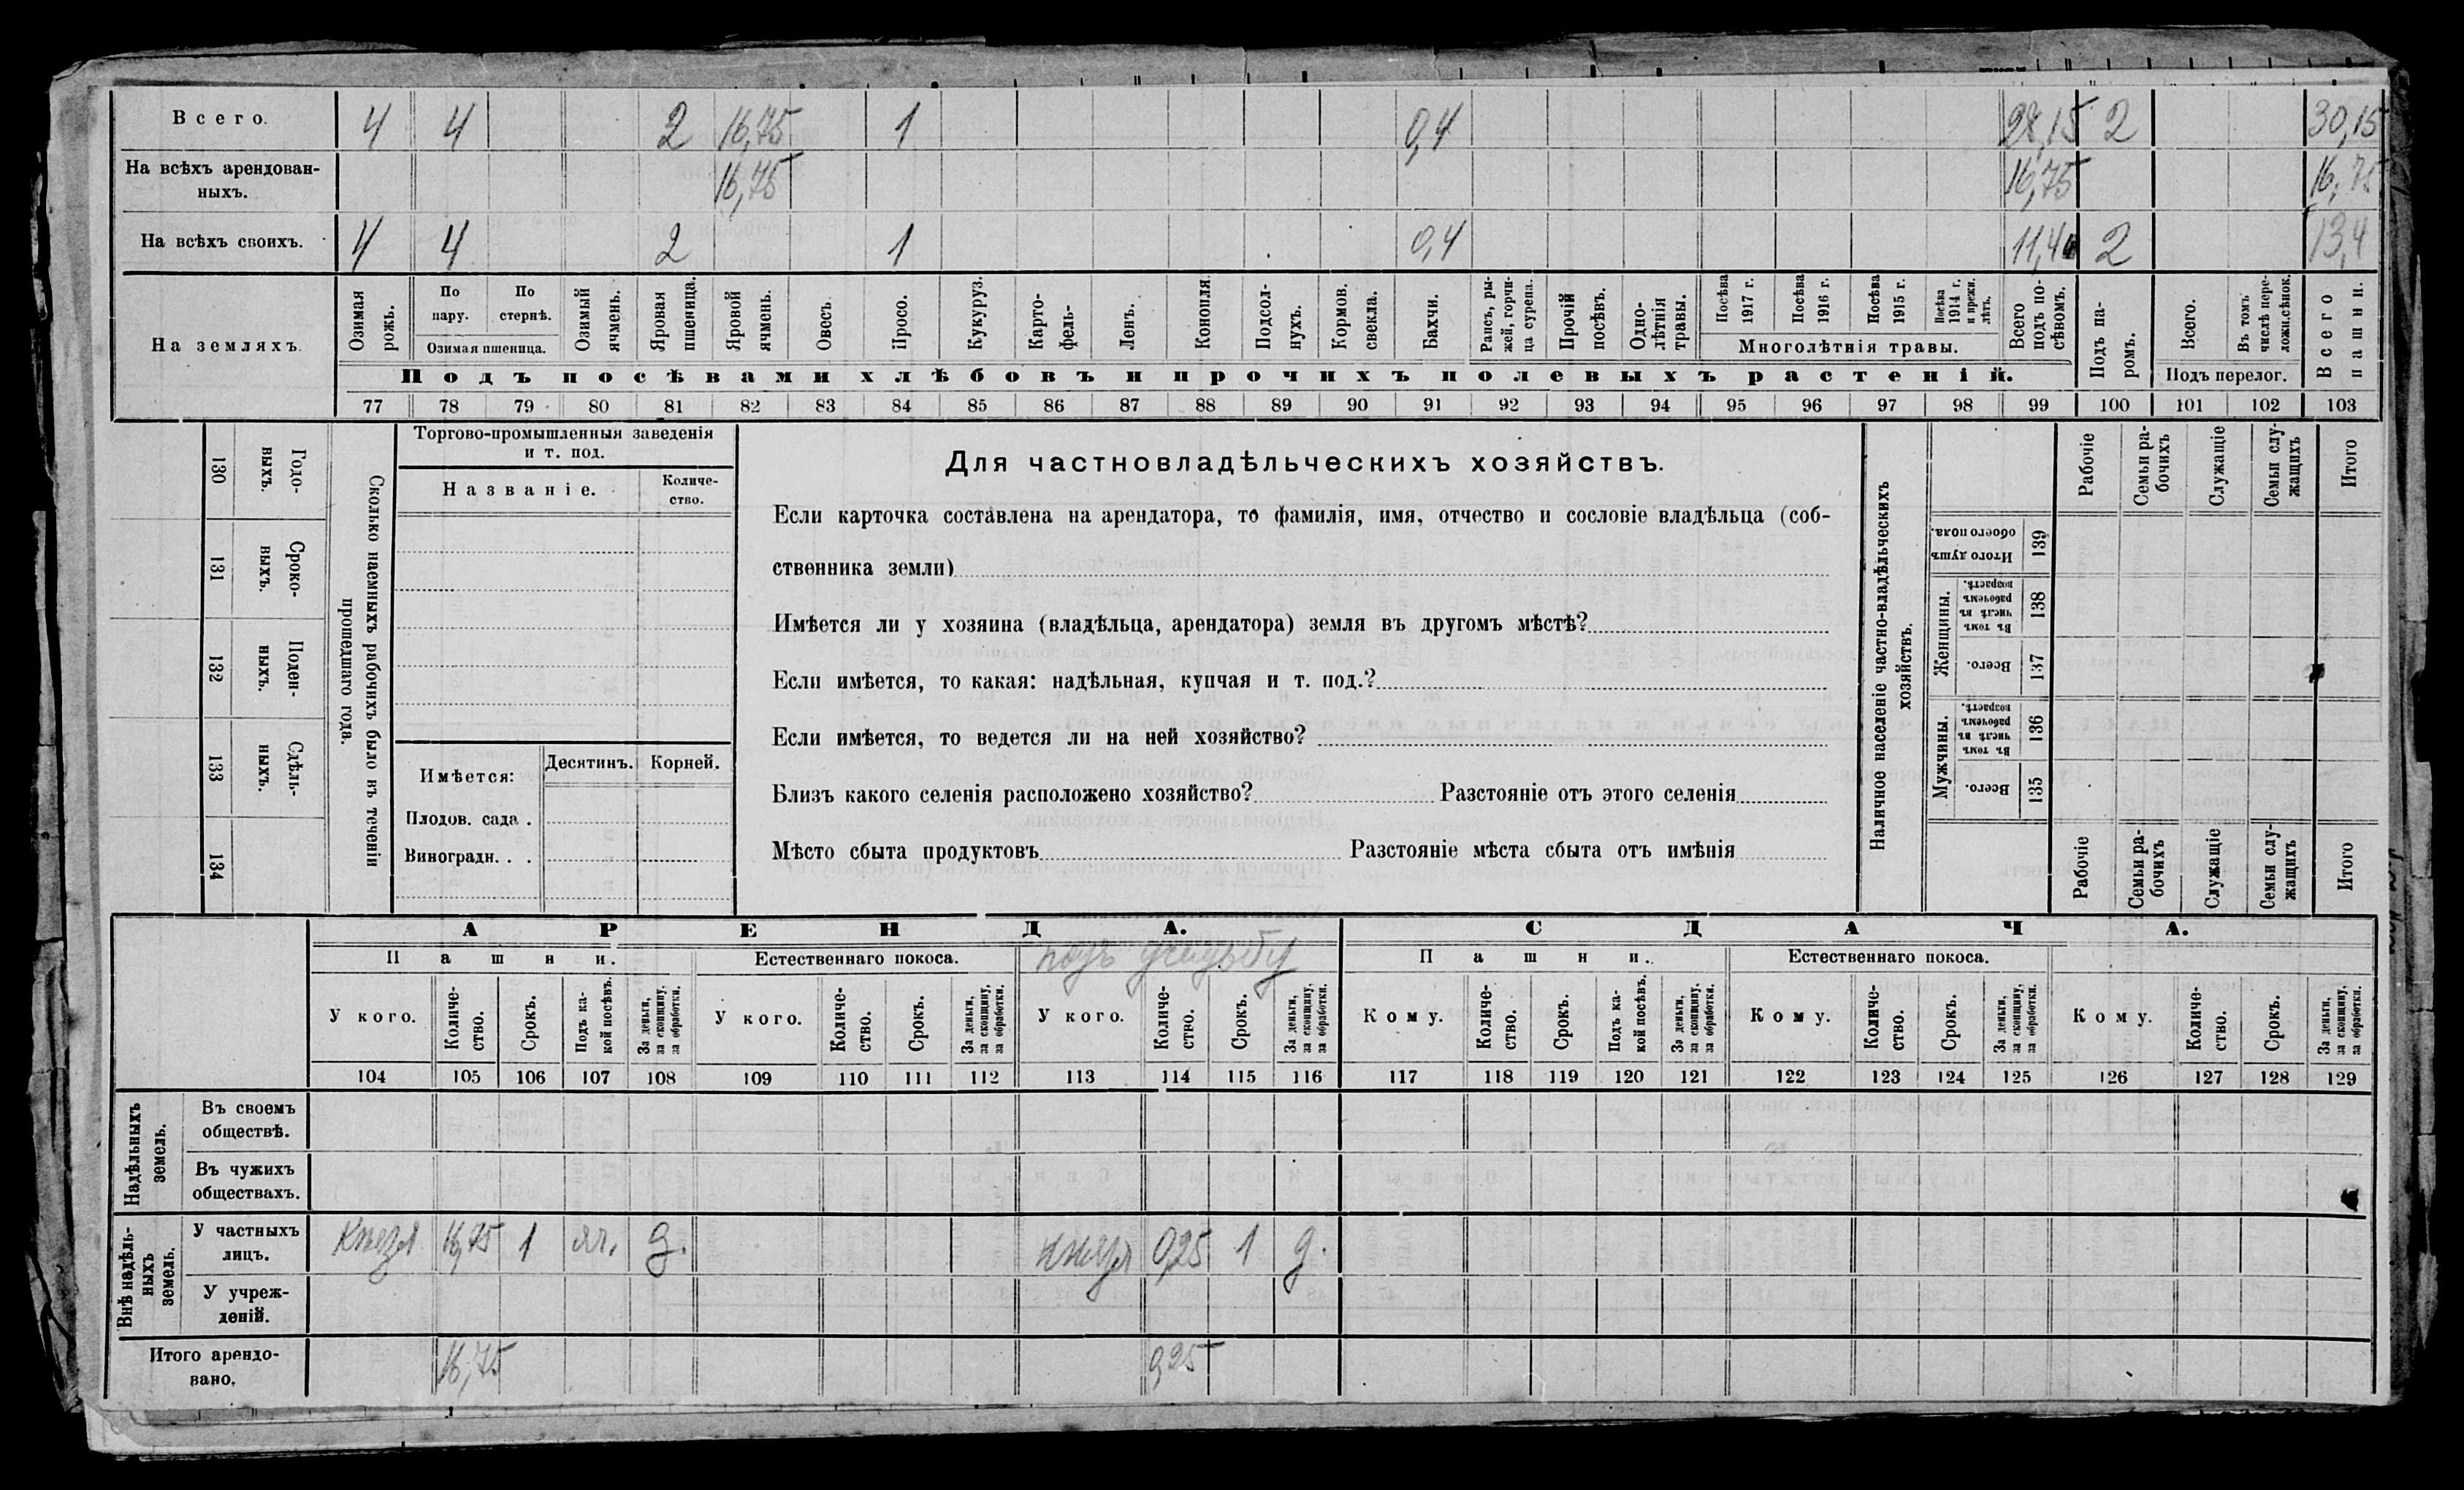 Всего. 4 4 2 16,75 1 0,4 28,15 2 30,15
На всѣхъ арендован-
ныхъ. 16,75 16,75 16,75
На всѣхъ своихъ. 4 4 2 1 0,4 11,4 2 13,4
На земляхъ.
Озимая рожь.
По пару.
По стернѣ.
Озимая пшеница.
Озимый ячмень.
Яровая пшеница.
Яровой ячмень.
Овесъ.
Просо.
Кукуруз.
Карто-
фель.
Ленъ.
Конопля
Подсол-
нухъ.
Кормов.
свекла.
Бахчи.
Рапсъ, ры-
жей, горчи-
ца сурепа.
Прочій
посѣвъ.
Одно-
лѣтнія
травы.
Посѣва
1917 г.
Посѣва
1916 г.
Посѣва
1915 г.
Посѣва
1914 г.
и прежн.
лѣтъ.
Многолѣтнія травы.
Всего
подъ по-
сѣвомъ.
Подъ па-
ромъ.
Всего.
Въ томъ
числѣ пере-
ложн.сѣнок.
Подъ перелог.
Всего
пашни.
Подъ посѣвами хлѣбовъ и прочихъ полевыхъ растеній.
77 78 79 80 81 82 83 84 85 86 87 88 89 90 91 92 93 94 95 96 97 98 99 100 101 102 103
Сколько наемныхъ рабочихъ было въ теченіи
прошедшаго года.
Годо-
выхъ.
130
Сроко-
выхъ.
131
Поден-
ныхъ.
132
Сдѣль-
ныхъ.
133
134
Торгово-промышленныя заведенія
и т. под.
Названіе.
Количе-
ство.
Имѣется:
Десятинъ. Корней.
Плодов. сада .
Виноградн. . .
Для частновладѣльческихъ хозяйствъ.
Если карточка составлена на арендатора, то фамилія, имя, отчество и сословіе владѣльца (соб-
ственника земли)
Имѣется ли у хозяина (владѣльца, арендатора) земля въ другомъ мѣстѣ?
Если имѣется, то какая: надѣльная, купчая и т. под.?
Если имѣется, то ведется ли на ней хозяйство?
Близъ какого селенія расположено хозяйство? Разстояніе отъ этого селенія
Мѣсто сбыта продуктовъ Разстояніе мѣста сбыта отъ имѣнія
Наличное населеніе частно-владѣльческихъ
хозяйствъ.
Рабочіе
Семьи ра-
бочихъ
Служащіе
Семьи слу-
жащихъ
Итого
Итого душъ
обоего пола.
139
Женщины.
Въ томъ
числѣ въ
рабочемъ
возрастѣ.
138
Всего.
137
Мужчины.
Въ томъ
числѣ въ
рабочемъ
возрастѣ.
136
Всего.
135
Рабочіе
Семьи ра-
бочихъ
Служащіе
Семьи слу-
жащихъ
Итого
АРЕНДА. СДАЧА.
Пашни. Естественнаго покоса. подъ усадьбу Пашни. Естественнаго покоса.
У кого.
Количе-
ство.
Срокъ.
Подъ ка-
кой посѣвъ.
За деньги,
за скопщину,
за обработки.
У кого.
Количе-
ство.
Срокъ.
За деньги,
за скопщину,
за обработки.
У кого.
Количе-
ство.
Срокъ.
За деньги,
за скопщину,
за обработки.
Кому.
Количе-
ство.
Срокъ.
Подъ ка-
кой посѣвъ.
За деньги,
за скопщину,
за обработки.
Кому.
Количе-
ство.
Срокъ.
За деньги,
за скопщину,
за обработки.
Кому.
Количе-
ство.
Срокъ.
За деньги,
за скопщину,
за обработки.
104 105 106 107 108 109 110 111 112 113 114 115 116 117 118 119 120 121 122 123 124 125 126 127 128 129
Надѣльныхъ
земель.
Въ своемъ
обществѣ.
Въ чужихъ
обществахъ.
Внѣ надѣль-
ныхъ
земель.
У частныхъ
лицъ. Князя 16,75 1 яч. д. Князя 0,25 1 д.
У учреж-
деній.
Итого арендо-
вано. 16,75 0,25